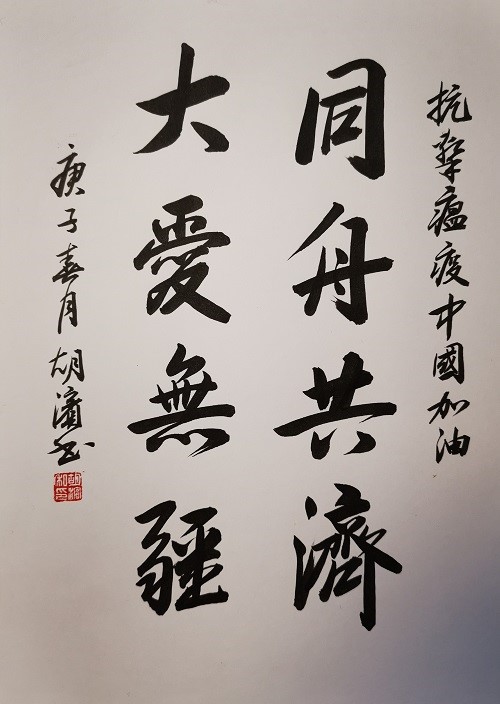 抗擊瘟疫中國加油
同舟共濟
大愛無疆
庚子春月胡濱书